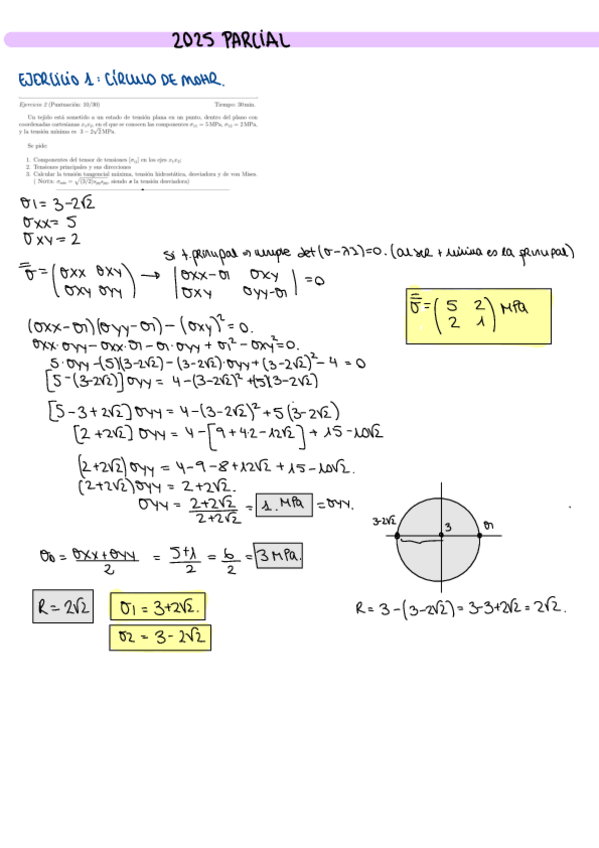 2025 PARCIAL
EJERCICIO 1: CÍRCULO DE MOHR.
Ejercicio 2 (Puntuación: 10/30) Tiempo: 30 min.
Un tejido está sometido a un estado de tensión plana en un punto, dentro del plano con
coordenadas cartesianas x₁x₂, en el que se conocen las componentes σ₁₁ = 5 MPa, σ₁₂ = 2 MPa,
y la tensión mínima es 3 − 2√2 MPa.
Se pide:
1. Componentes del tensor de tensiones [σᵢⱼ] en los ejes x₁x₂;
2. Tensiones principales y sus direcciones
3. Calcular la tensión tangencial máxima, tensión hidrostática, desviadora y de von Mises.
( Nota: siendo s la tensión desviadora)
σ1 = 3-2√2
σxx = 5
σxy = 2
si t. principal ⇒ cumple det(σ-λI)=0. (al ser t mínima es la principal)
σ = (σxx σxy → |σxx-σ1 σxy =0
σxy σyy) |σxy σyy-σ1|
σ = (5 2 MPa
2 1)
(σxx-σ1)(σyy-σ1) - (σxy)² = 0.
σxx·σyy - σxx·σ1 - σ1·σyy + σ1² - σxy² = 0.
5·σyy - (5)(3-2√2) - (3-2√2)·σyy + (3-2√2)² - 4 = 0
[5-(3-2√2)] σyy = 4-(3-2√2)² +(5)(3-2√2)
[5-3+2√2] σyy = 4-(3-2√2)² + 5(3-2√2)
[2+2√2] σyy = 4-[9+4·2-12√2] + 15-10√2
(2+2√2) σyy = 4-9-8+12√2+15-10√2.
(2+2√2) σyy = 2+2√2.
σyy = 2+2√2 / 2+2√2 = 1. MPa = σyy.
3-2√2
3
σ1
σ0 = σxx+σyy / 2 = 5+1 / 2 = 6 / 2 = 3 MPa.
R = 2√2
σ1 = 3+2√2.
R = 3-(3-2√2) = 3-3+2√2 = 2√2.
σ2 = 3-2√2